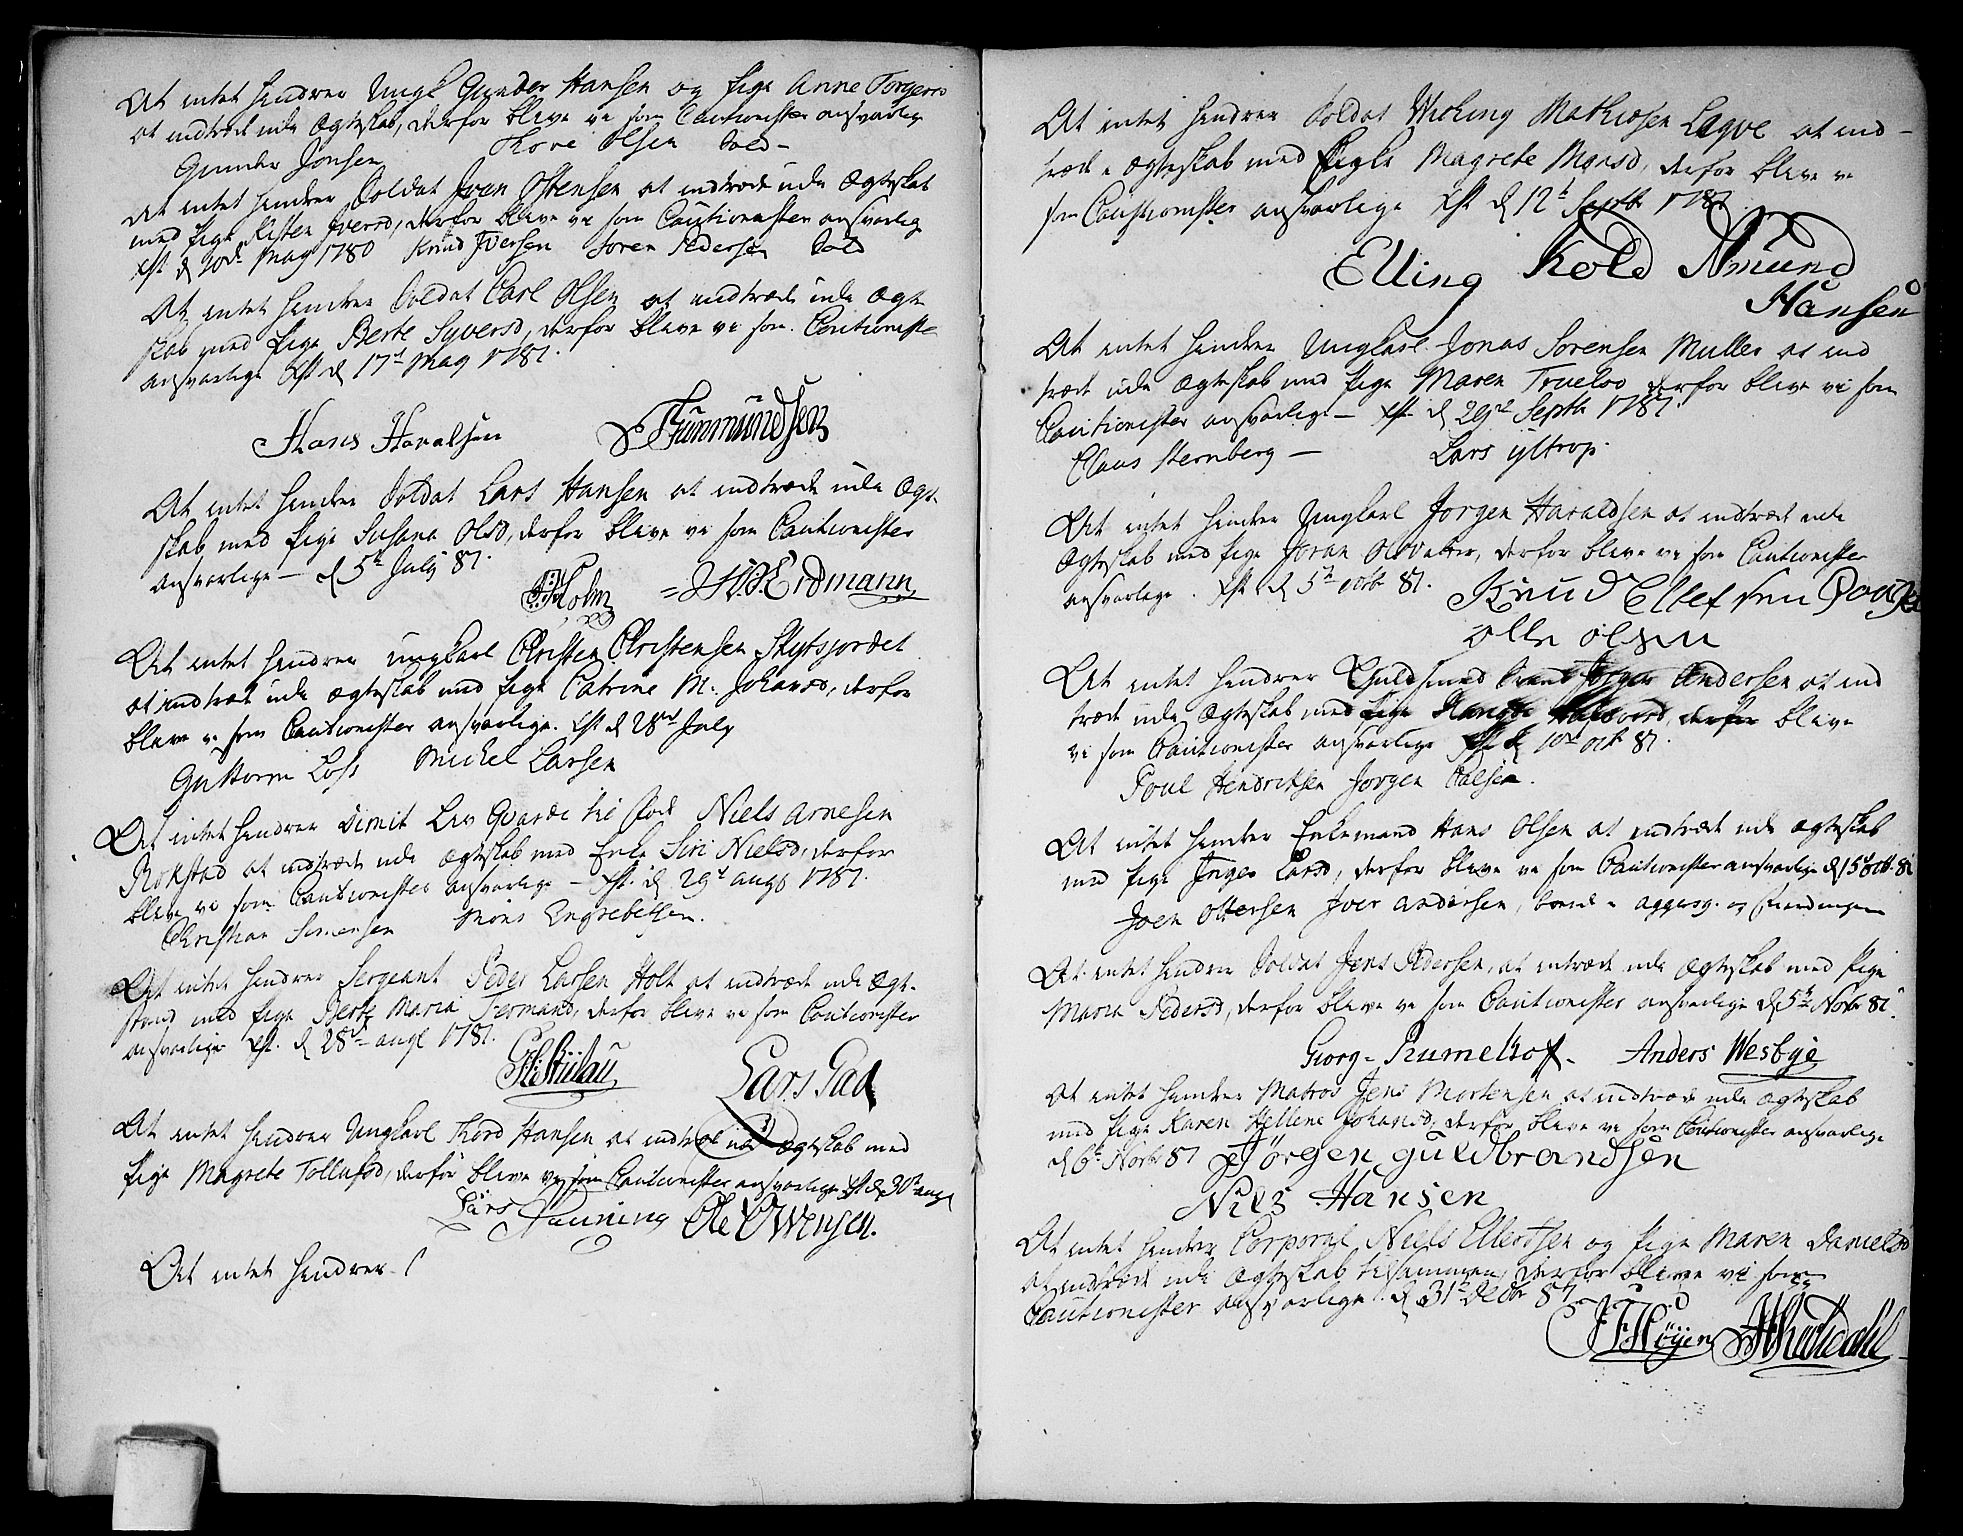 At intet hindrer Ungk Gunder Hansen og Pige Anne Torgersd
at indtræde udi Ægteskab, derfor blive vi som Cautionister ansvarlig
Gunder Jonsen Thore Olsen
At intet hindrer Soldat Iven Ostensen at indtræde udi Ægteskab
med Pige Kisten Iversd, derfor blive vi som Cautionister ansvarlig
Xst d 20de May 1780 Knud Iversen Soren Pedersen
At intet hindrer Soldat Carl Olsen at indtræde udi Ægte
skab med Pige Berte Syversd, derfor blive vi som Cautioniste
ansvarlige Xst d 17d May 1781.
Hans Haralsen Gunmundsen
At intet hindrer Soldat Lars Hansen at indtræde udi Ægte
skab med Pige Susana Olsd, derfor blive vi som Cautionister
ansvarlige - d 5te July 81.
Holm Erdmann
At intet hindrer ungkarl Christen Christensen Skytsjordet
at indtræde udi Ægteskab med Pige Catrine M. Johansd, derfor
blive vi som Cautionister ansvarlige. Xst d 28de July
Guttorm Loss Michel Larsen
At intet hindrer Dimit Liv Guarde til Fods Niels Arnesen
Rokstad at indtræde udi Ægteskab med Enke Siri Nielsd, derfor
blive vi som Cautionister ansvarlige - Xst. d 29d aug 1781.
Christian Simensen Mons Engrebetsen.
At intet hindrer Sergeant Peder Larsen Holt at indtræde udi Ægte
stand med Pige Berte Maria Fermand, derfor blive vi som Cautionister
ansvarlige Xst. d 28de augt 1781.
Lars Gad
At intet hindrer Ungkarl Thord Hansen at indtræde udi Ægteskab med
Pige Magrete Tollefsd, derfor blive vi som Cautionister ansvarlige Xst d 30te aug
Lars Ole Owensen.
At intet hindrer
At intet hindrer Soldat Wiching Mathiesen Leqve at ind-
træde i Ægteskab med Pige Magrete Monsd, derfor blive vi
som Cautionister ansvarlige Xst d 12t Septb 1781
Elling Kold Amund
Hansen
At intet hindrer Ungkarl Jonas Sorensen Muller at ind
træde udi Ægteskab med Pige Maren Truelsd derfor blive vi som
Cautionister ansvarlige - Xst d 29de Septb 1781.
Claus Sternberg - Lars Yltrop.
At intet hindrer Ungkarl Jorgen Haraldsen at indtræde udi
Ægteskab med Pige Joran Olsdatter, derfor blive vi som Cautionister
ansvarlige. Xst d 5te octb 81. Knud Ellefsen
Olle Olsen
At intet hindrer Guldsmed Andersen at ind
træde udi Ægteskab med Pige derfor blive
vi som Cautionister ansvarlige Xst d 10de octb 81.
Poul Hendrichsen Jorgen Palsen.
At intet hindrer Enkemand Hans Olsen at indtræde udi Ægteskab
med Pige Inger Larsd, derfor blive vi som Cautionister ansvarlige d 15d octb. 81
Joen Ottersen Iver Andersen,
At intet hindrer Soldat Jens Pedersen, at intræde udi Ægteskab med Pige
Maria Pedersd, derfor blive vi som Cautionister ansvarlige d 5te Novbr 81.
Georg Rumelhof. Anders Wesbye
At intet hindrer Matros Jens Mortensen at indtræde udi Ægteskab
med Pige Karen Hellene Johansd, derfor blive vi som Cautionister ansvarlige
d 6te Novbr 81 Jörgen Guldbrandsen
Nils Hansen
At intet hindrer Corporal Niels Ellertsen og Pige Maren Danielsd
at indtræde udi Ægteskab tilsammen, derfor blive vi som
Cautionister ansvarlige. d 31te decbr 81.
Höyer